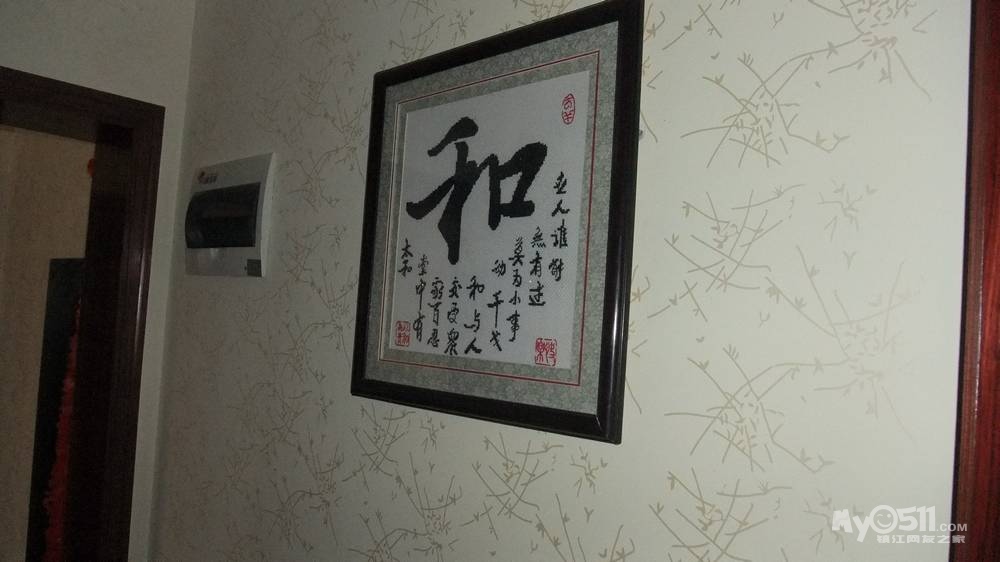 和
世人谁能
无有过
莫为小事
动干戈
和与人
交更众
家百忍
堂中有
太和
My0511.COM
镇江网友之家